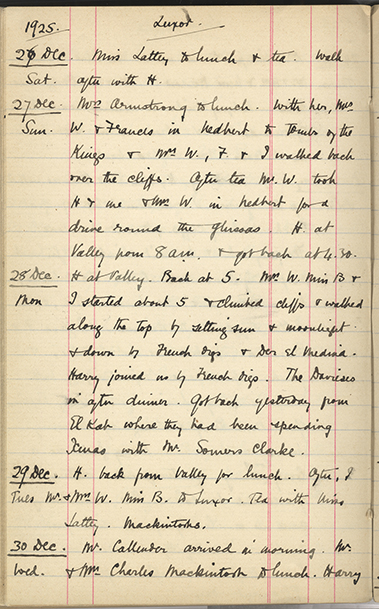 1925. Luxor.
26 Dec. Miss Lattey to lunch & tea. Walk
Sat. after with H.
27 Dec. Mrs Armstrong to lunch. With her, Mrs
Sun. W. & Francis in Hedbert to Tombs of the
Kings & Mrs W., F. & I walked back
over the cliffs. After tea Mr. W. took
H & me & Mrs W. in Hedbert for a
drive round the ghissas. H. at
Valley from 8 am. & got back at 4.30.
28 Dec. H at Valley. Back at 5. Mrs W. Miss B &
Mon I started about 5 & climbed cliffs & walked
along the top by setting sun & moonlight
& down by French Digs & Der El Medina.
Harry joined us by French Digs. The Davieses
in after dinner. Got back yesterday from
El Kab where they had been spending
Xmas with Mr. Somers Clarke.
29 Dec. H. back from Valley for lunch. After, I
Tues Mr. & Mrs W. Miss B. to Luxor. Tea with Miss
Lattey. Mackintoshs.
30 Dec. Mr. Callender arrived in morning. Mr.
Wed. & Mrs Charles Mackintosh to lunch. Harry